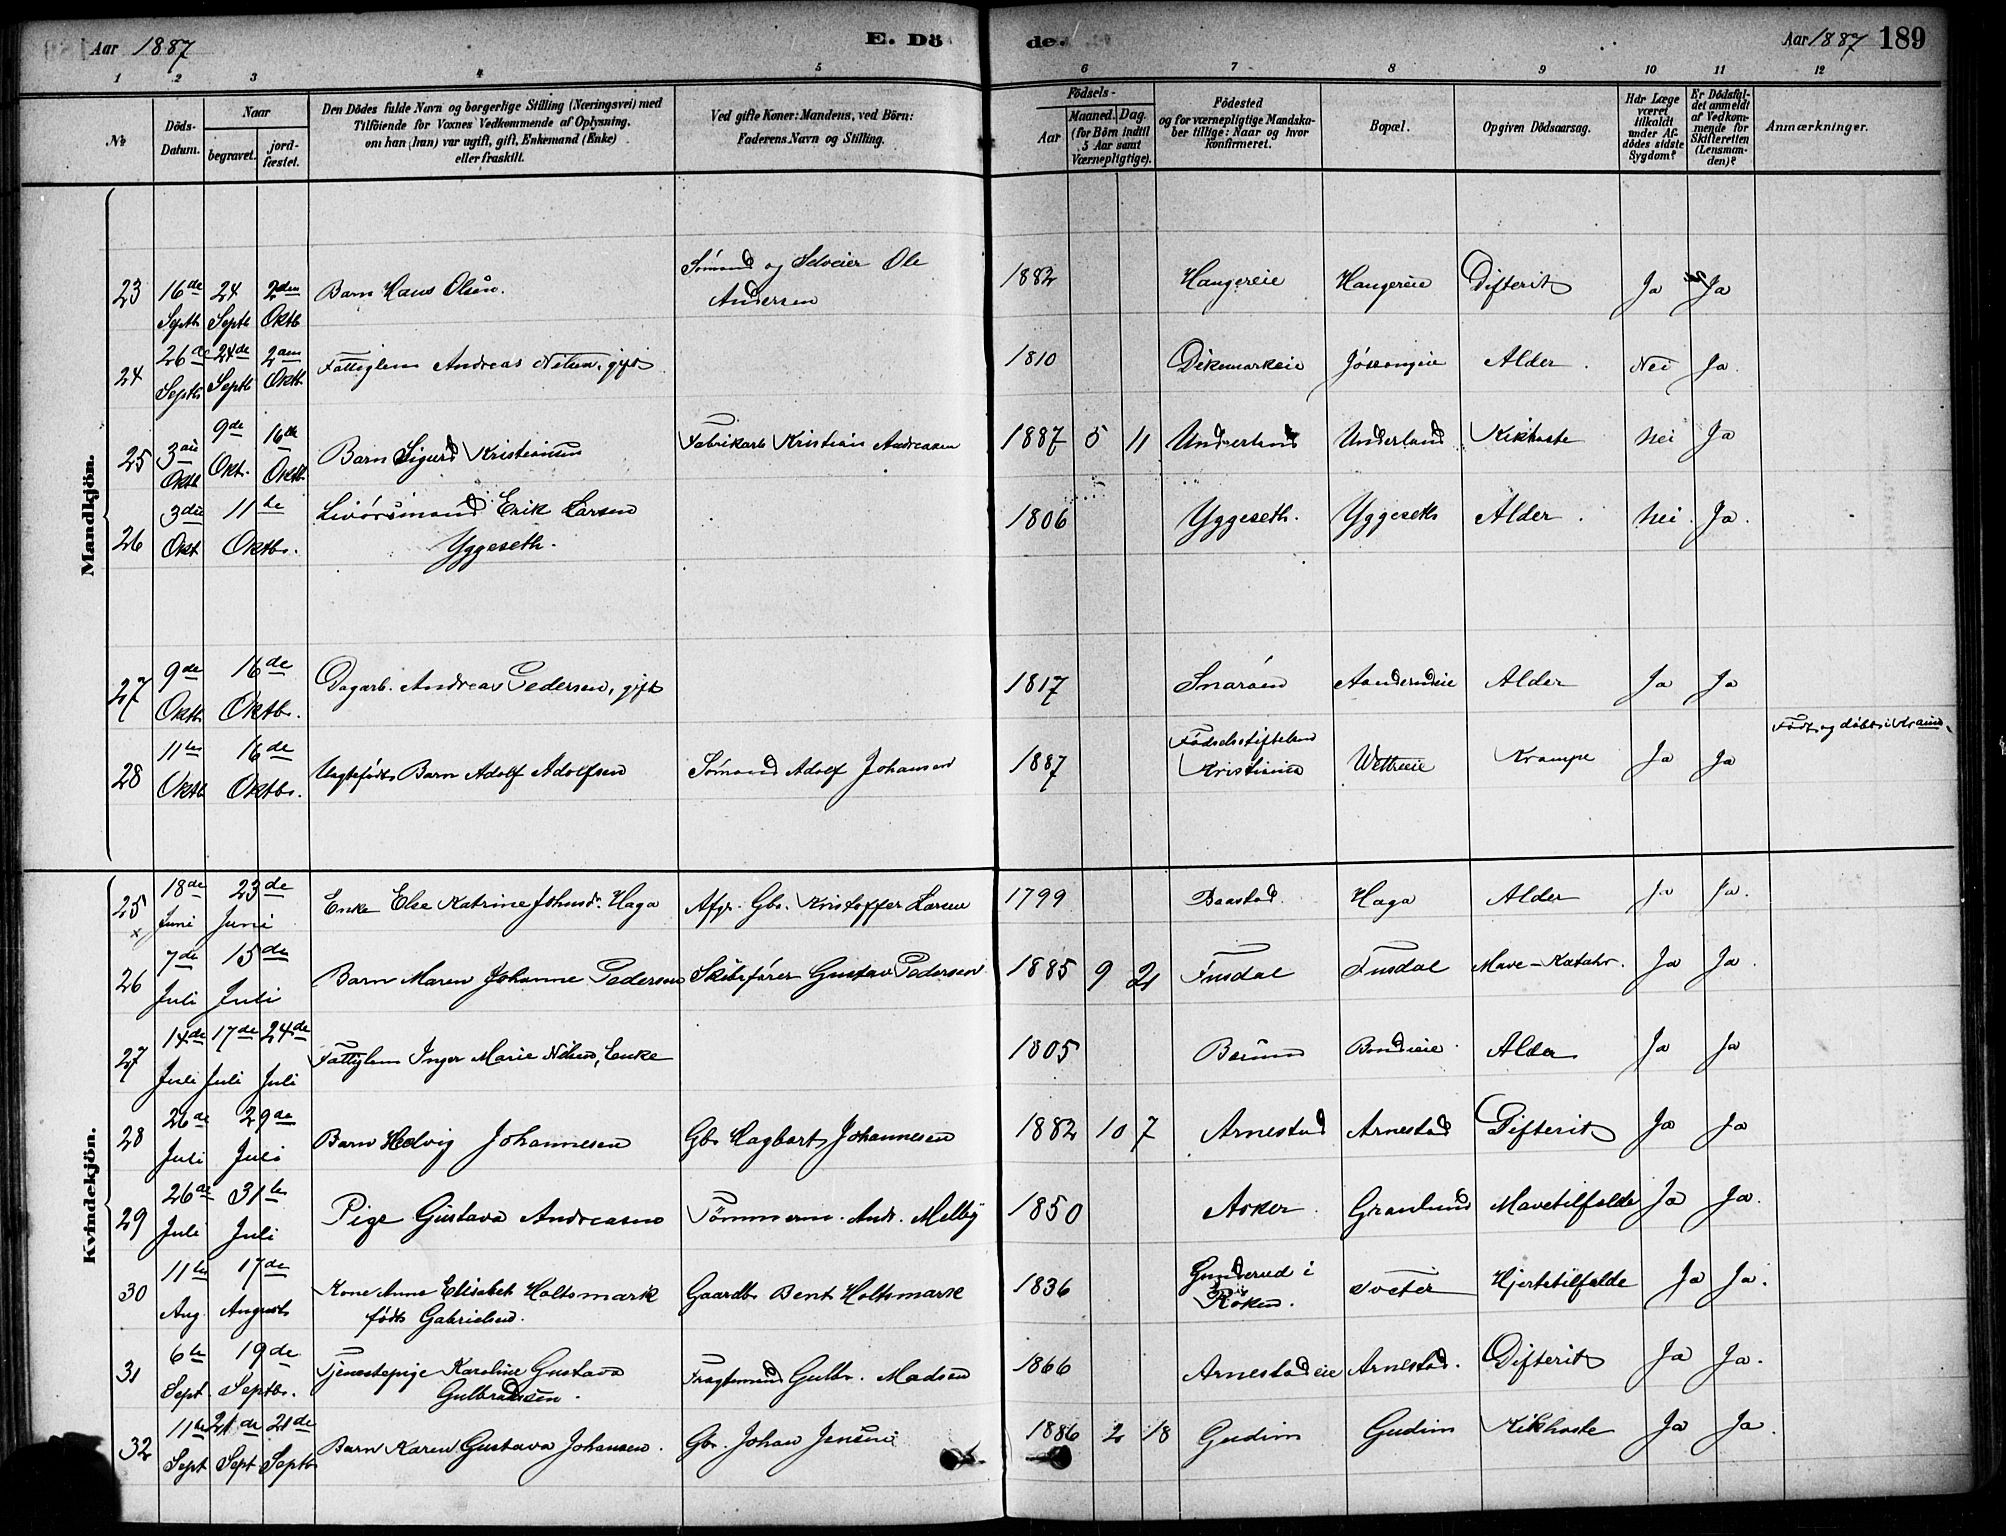 Aar 1887 E. Dö
de. Aar 1887 189
1 2 3 4 5 6 7 8 9 10 11 12
№
Döds-
Datum.
Naar
begravet.
jord-
fæstet.
Den Dödes fulde Navn og borgerlige Stilling (Næringsvei) med
Tilföiende for Voxnes Vedkommende af Oplysning,
om han (hun) var ugift, gift, Enkemand (Enke)
eller fraskilt.
Ved gifte Koner: Mandens, ved Börn:
Faderens Navn og Stilling.
Födsels-
Aar
Maaned. Dag.
(for Börn indtil
5 Aar samt
Værnepligtige).
Födested
og for værnepligtige Mandska-
ber tillige: Naar og hvor
konfirmeret.
Bopæl.
Opgiven Dödsaarsag.
Har Læge
været
tilkaldt
under Af-
dödes sidste
Sygdom?
Er Dödsfal-
det anmeldt
af Vedkom-
mende for
Skifteretten
(Lensman-
den)?
Anmærkninger.
Mandkjön.
23 16de Septb 24 Septb 2den Oktb Barn Hans Olsen. Sömand og Selveier Ole
Andersen 1882 Hangereie Hangereie Difterit Ja Ja
24 26de Septb 24de Septb 2den Oktb Fattiglem Andreas Nilsen, gift 1810 Dikemarkeie Alder. Nei Ja.
25 3die Oktb 9de Okt. 16de Oktb Barn Sigurd Kristiansen Fabrikarb Kristian Andreasen 1887 5 11 Underland Underland Kikhoste Nei Ja
26 3die Okt 11te Oktbr. Livörsmand Erik Larsen
Yggeseth. 1806 Yggeseth. Yggeseth Alder. Nei. Ja.
27 9de Oktb 16de Oktbr. Dagarb. Andreas Pedersen, gift 1817 Snaröen Alder Ja Ja
28 11te Oktb 16de Oktbr. Uegtefödt Barn Adolf Adolfsen Sömand Adolf Johansen 1887 Födselsstiftelsen
Kristiania Wettreeie Krampe Ja Ja Födt og döbt i
Kvindekjön.
25 x 18de Juni 23de Juni Enke Else Katrine Johnsdr. Haga Afgr. Gbr. Kristoffer Larsen 1799 Baastad. Haga Alder Ja Ja.
26 7de Juli 15de Juli Barn Maren Johanne Pedersen Skibsförer Gustav Pedersen 1885 9 21 Fusdal Fusdal Mave-Katahr. Ja Ja.
27 14de Juli 17de Juli 24de Juli Fattiglem Inger Marie Nilsen, Enke 1805 Bærum Bondieie. Alder Ja Ja
28 26de Juli 29de Juli Barn Hedvig Johannesen Gbr Hagbart Johannesen 1882 10 7 Arnestad Arnestad Difterit Ja Ja
29 26de Juli 31te Juli Pige Gustava Andreasen Tömmerm. Andr. Melby 1850 Asker. Granlund Mavetilfælde Ja Ja.
30 11te Aug. 17de Augusts Kone Anne Elisabet Holtsmark
födt Gabrielsen. Gaardbr Bent Holtsmark 1836 Gunderud i
Röken. Sveter Hjertetilfælde Ja Ja.
31 6te Sept. 19de Septbr. Tjenestepige Karoline Gustava
Gulbrandsen. Fragtemand Gulbr. Madsen 1866 Arnestadeie Arnestad. Difterit Ja Ja.
32 11te Sept 21de Sept 21de Septbr Barn Karen Gustava Johansen. Gbr. Johan Jensen 1886 2 18 Gudim Gudim Kikhoste Ja Ja.